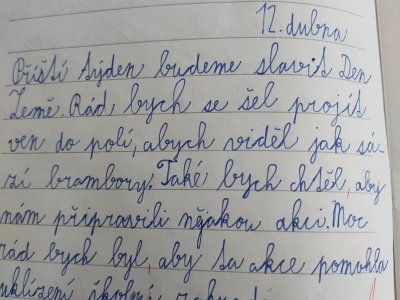 12. dubna
Příští týden budeme slavit Den
Země. Rád bych se šel projít
ven do polí, abych viděl jak sá-
zí brambory. Také bych chtěl, aby
nám připravili nějakou akci. Moc
rád bych byl, aby ta akce pomohla
uklízení školní